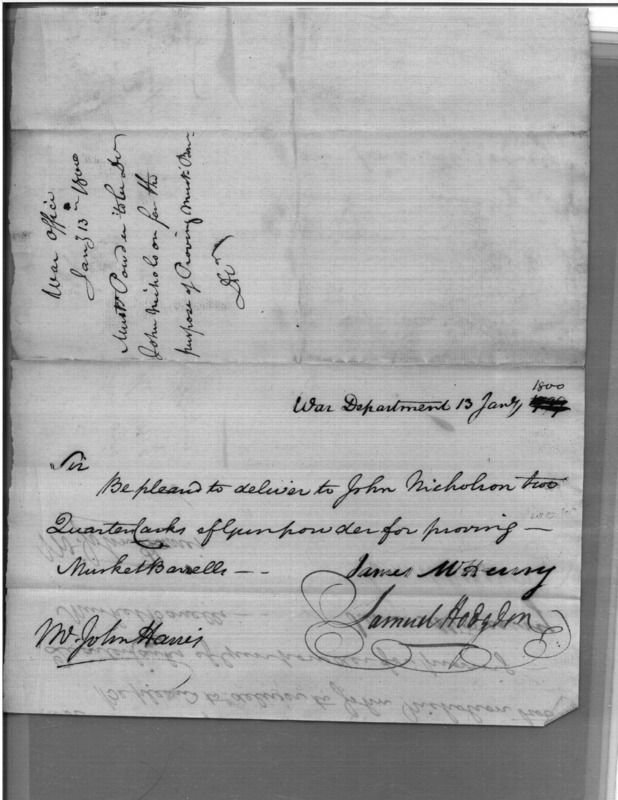 War Office
Jany 13th 1800
Musktt Powder to be Dd
John Nicholson for the
purpose of Proving Muskt Bar-
Dd
War Department 13 Jany 1800
Sir
Be pleased to deliver to John Nicholson two
Quarter Casks of Gunpowder for proving —
Musket Barrells — -
James McHenry
Samuel Hodgdon
Mr. John Harris